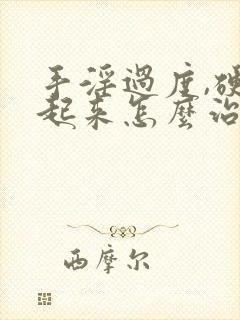 手淫過度,硬
起来怎麽治
西摩尔